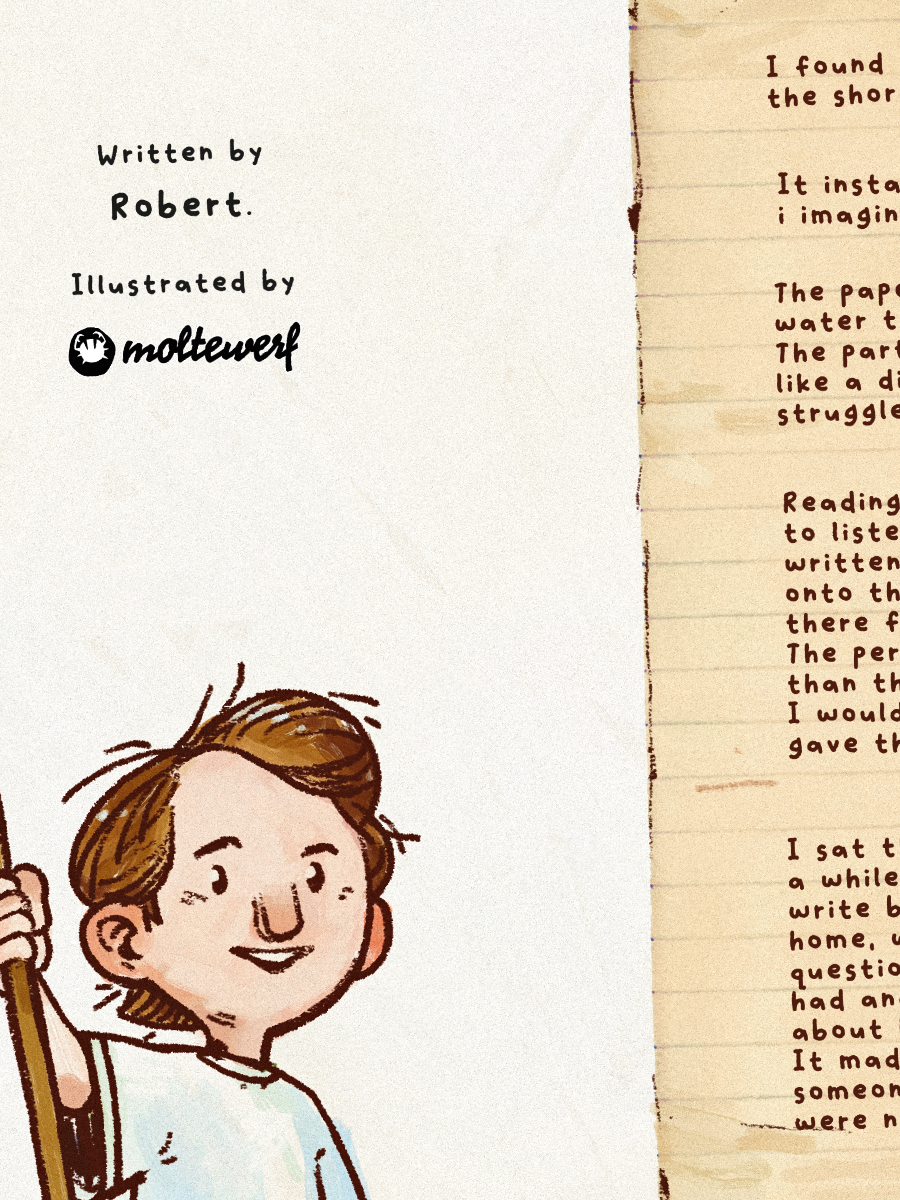 Written by
Robert.
Illustrated by
moltewerf
I found
the shor
It insta
i imagin
The pape
water t
The part
like a di
struggle
Reading
to liste
written
onto th
there f
The per
than th
I would
gave th
I sat t
a while
write b
home, w
questio
had an
about
It mad
someon
were n